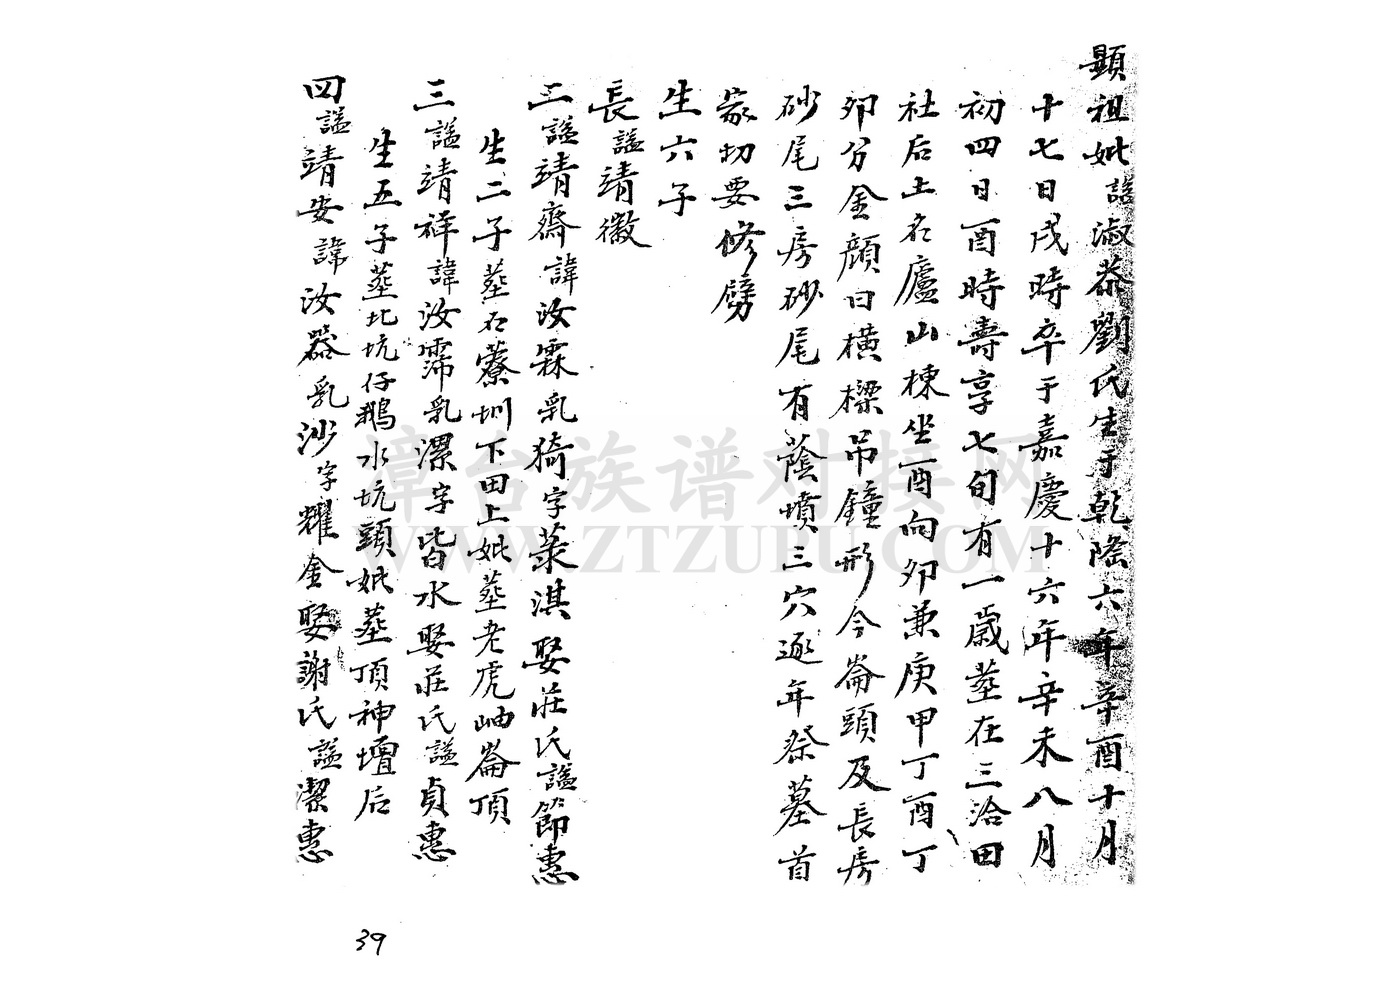 顯祖妣謚淑恭劉氏生于乾隆六年辛酉十月
十七日戌時卒于嘉慶十六年辛未八月
初四日酉時壽享七旬有一歲塟在三洽田
社后土名廬山棟坐酉向夘兼庚甲丁酉丁
夘分金顏曰橫樑吊鐘形今崙頭及長房
砂尾三房砂尾有蔭墳三穴逐年祭墓首
家切要修劈
生六子
長謚靖徽
二謚靖齋諱汝霖乳猗字菉淇娶莊氏謚節惠
生二子塟石藔圳下田上妣塟老虎岫崙頂
三謚靖祥諱汝霈乳漯字皆水娶莊氏謚貞惠
生五子塟北坑仔鵝水坑頭妣塟頂神壇后
四謚靖安諱汝器乳沙字耀金娶謝氏謚潔惠
39
漳台族谱对接网
WWW.ZTZUPU.COM